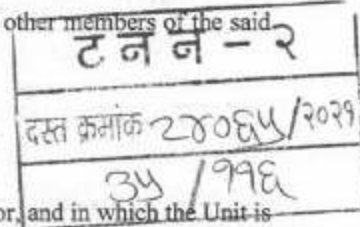 other members of the said
ट न न - २
दस्त क्रमांक २४०६५/२०२१
३५ / ११६
or, and in which the Unit is